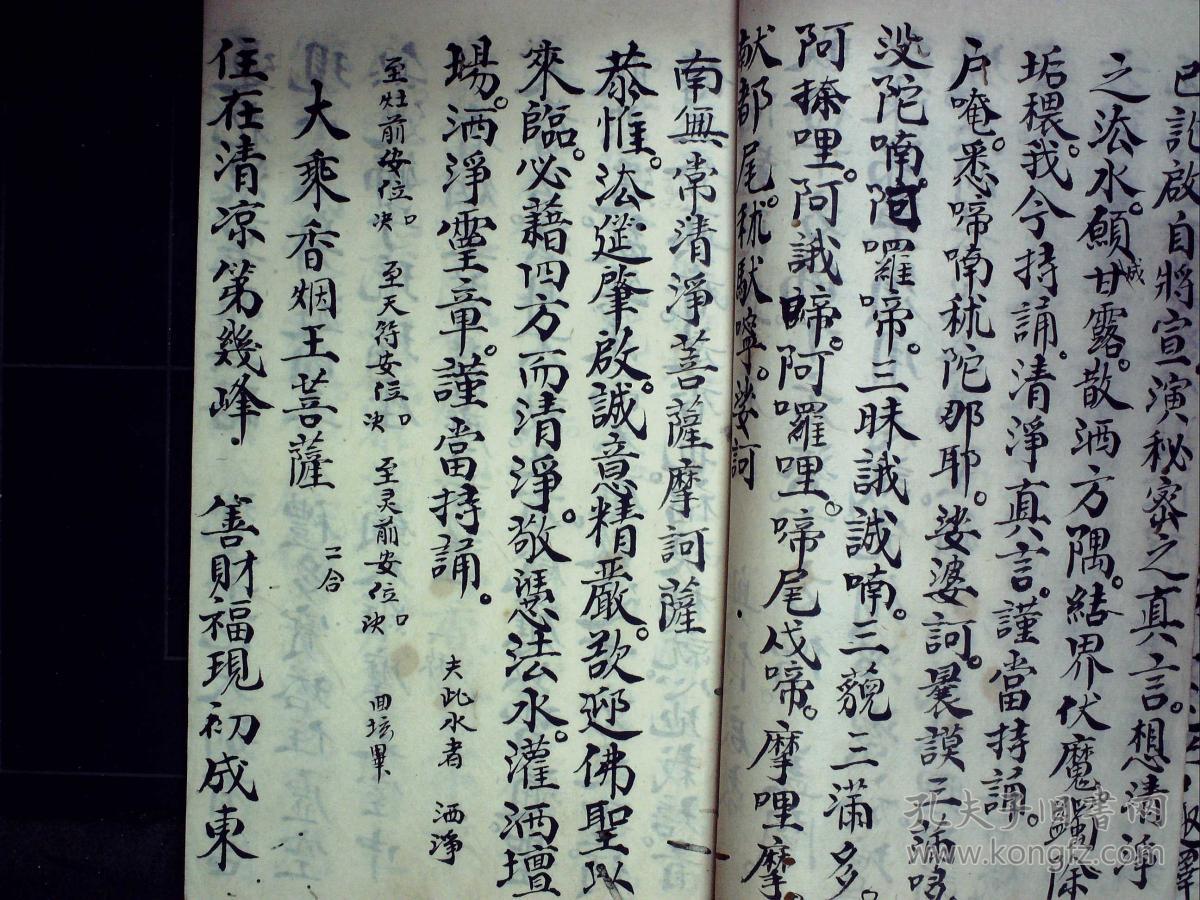 已訖啟自將宣演秘密之真言。想清淨
之法水。願甘露。散洒方隅。結界伏魔蠲除
成
垢穢。我今持誦。清淨真言。謹當持誦。
戶唵。悉啼喃秫陀那耶。娑婆訶。曩謨三滿哆
没陀喃。阿囉啼。三昧誐誠喃。三藐三滿多。
阿搽哩。阿誐啼。阿囉哩。啼尾戍啼。摩哩摩。
馱都尾秫馱嚀。娑訶
南無常清淨菩薩摩訶薩
恭惟。法筵肇啟。誠意精嚴。欲迎佛聖以
來臨。必藉四方而清淨。敬憑法水。灌洒壇
場。洒淨靈章。謹當持誦。 夫此水者 洒淨
至灶前安位決 至天符安位決 至灵前安位決 回壇畢
大乘香烟王菩薩 二合
住在清凉第幾峰 善財福現初成東
孔夫子旧書網
www.kongfz.com